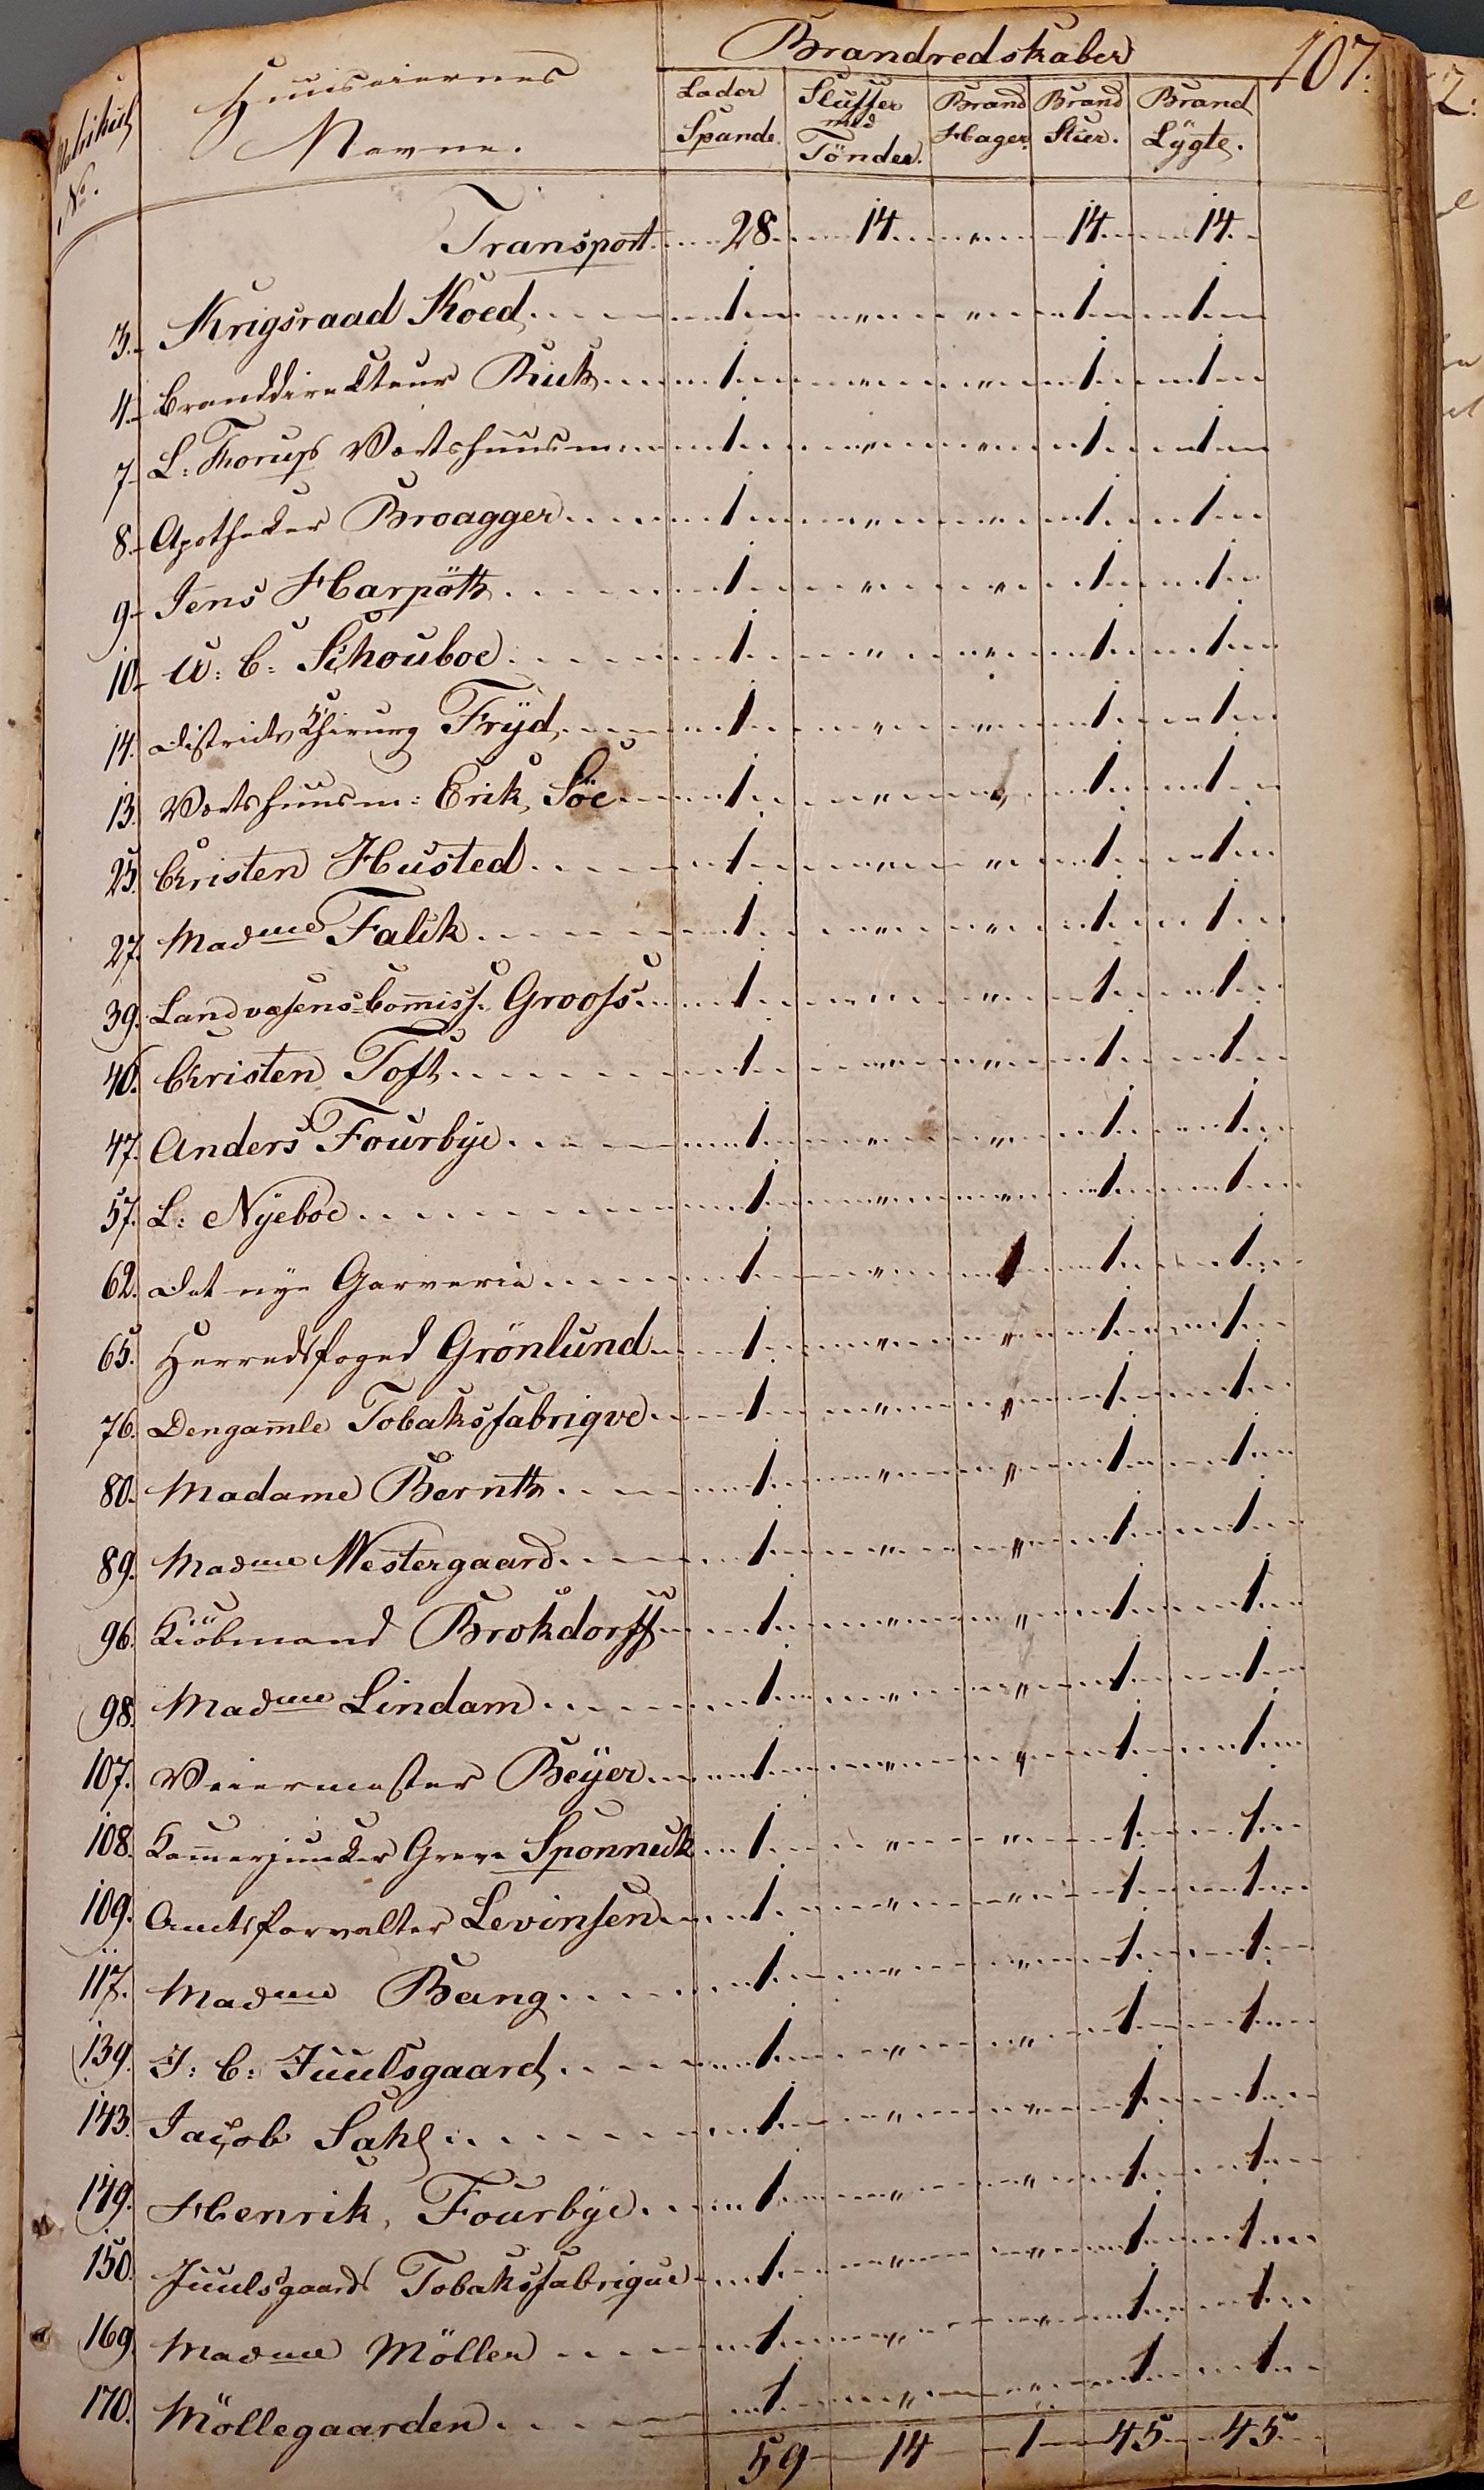 Brandredskaber 107.
Matrikul No. Huuseiernes Navne. Læder Spande. Sluffer med Tönder. Brand Hager. Brand Stier. Brand Lÿgte.
Transport 28 14 " 14 14
3. Krigsraad Koed 1 " " 1 1
4. Branddirekteur 1 " " 1 1
7. L: Thorups Vertshuus 1 " " 1 1
8. Apotheker Broagger 1 " " 1 1
9. Jens Harpöth 1 " " 1 1
10. U: C: Schouboe 1 " " 1 1
14. Districts Chirurg Frÿd 1 " " 1 1
13. Vertshuusm: Erik Söe 1 " " 1 1
25. Christen Husted 1 " " 1 1
27. Madme Falck 1 " " 1 1
39. Landvæsens-Commiss. Grooss 1 " " 1 1
40. Christen Toft 1 " " 1 1
47. Anders Fourbÿe 1 " " 1 1
57. L: Nÿeboe 1 " " 1 1
62. Det nye Garverie 1 " 1 1 1
65. Herredsfoged Grönlund 1 " " 1 1
76. Den gamle Tobaksfabriqve 1 " " 1 1
80. Madame Bernth 1 " " 1 1
89. Madme Westergaard 1 " " 1 1
96. Kiöbmand Brokdorff 1 " " 1 1
98. Madme Lindam 1 " " 1 1
107. Veiermester Beÿer 1 " " 1 1
108. Kammerjunker Greve Sponneck 1 " " 1 1
109. Amtsforvalter Levinsen 1 " " 1 1
117. Madme Bang 1 " " 1 1
139. J: C: Juulsgaard 1 " " 1 1
143. Jacob Sahl 1 " " 1 1
149. Henrik Fourbÿe 1 " " 1 1
150. Juulsgaards Tobaksfabrique 1 " " 1 1
169. Madme Möller 1 " " 1 1
170. Möllegaarden 1 " " 1 1
59 14 1 45 45